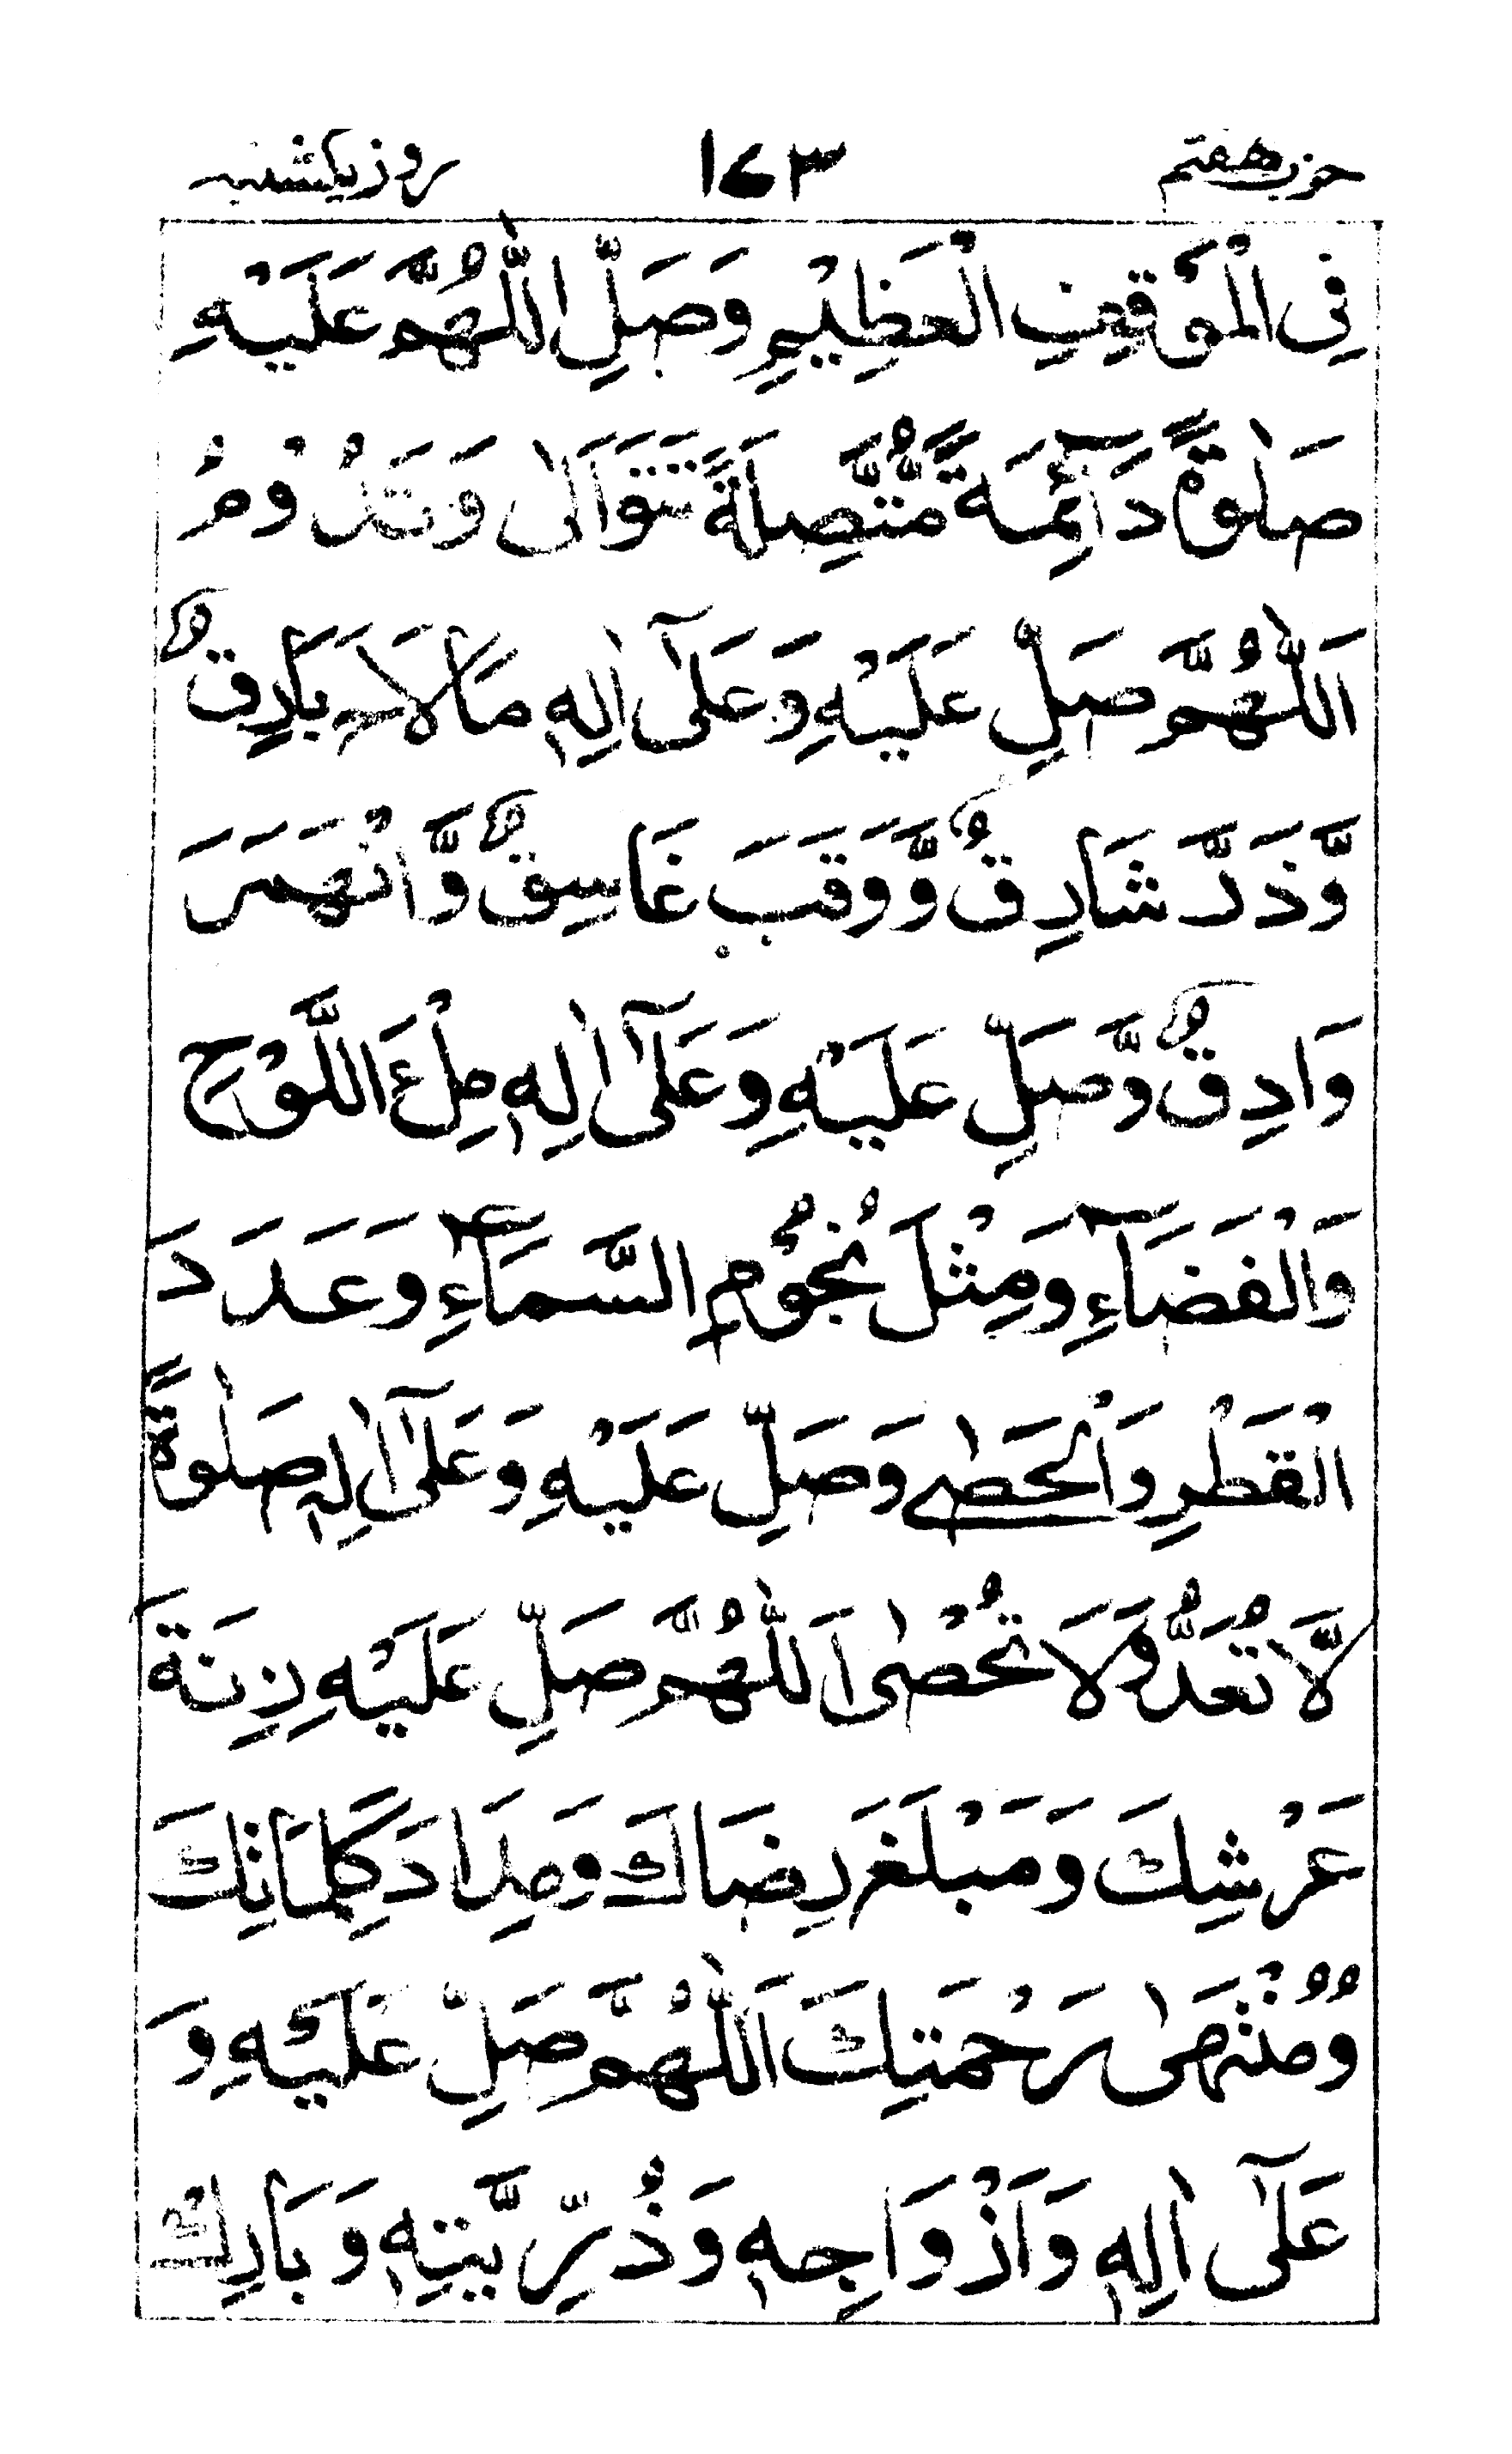 حزب هفتم ١٤٣ روز یکشنبہ
فِی الْمَوْقِفِ الْعَظِیْمِ وَصَلِّ اللّٰهُمَّ عَلَیْهِ
صَلٰوةً دَآئِمَةً مُّتَّصِلَةً تَتَوَالٰی وَتَدُوْمُ
اَللّٰهُمَّ صَلِّ عَلَیْهِ وَعَلٰٓی اٰلِهٖ مَا لَاحَ بَارِقٌ
وَّذَرَّ شَارِقٌ وَّوَقَبَ غَاسِقٌ وَّانْهَمَرَ
وَادِقٌ وَّصَلِّ عَلَیْهِ وَعَلٰٓی اٰلِهٖ مِلْءَ اللَّوْحِ
وَالْفَضَآءِ وَمِثْلَ نُجُوْمِ السَّمَآءِ وَعَدَدَ
الْقَطْرِ وَالْحَصٰے وَصَلِّ عَلَیْهِ وَعَلٰٓی اٰلِهٖ صَلٰوةً
لَّا تُعَدُّ وَلَا تُحْصٰی اَللّٰهُمَّ صَلِّ عَلَیْهِ زِنَةَ
عَرْشِكَ وَمَبْلَغَ رِضَاكَ وَمِدَادَ كَلِمَاتِكَ
وَمُنْتَهٰی رَحْمَتِكَ اَللّٰهُمَّ صَلِّ عَلَیْهِ وَ
عَلٰٓی اٰلِهٖ وَاَزْوَاجِهٖ وَذُرِّیَّتِهٖ وَبَارِكْ